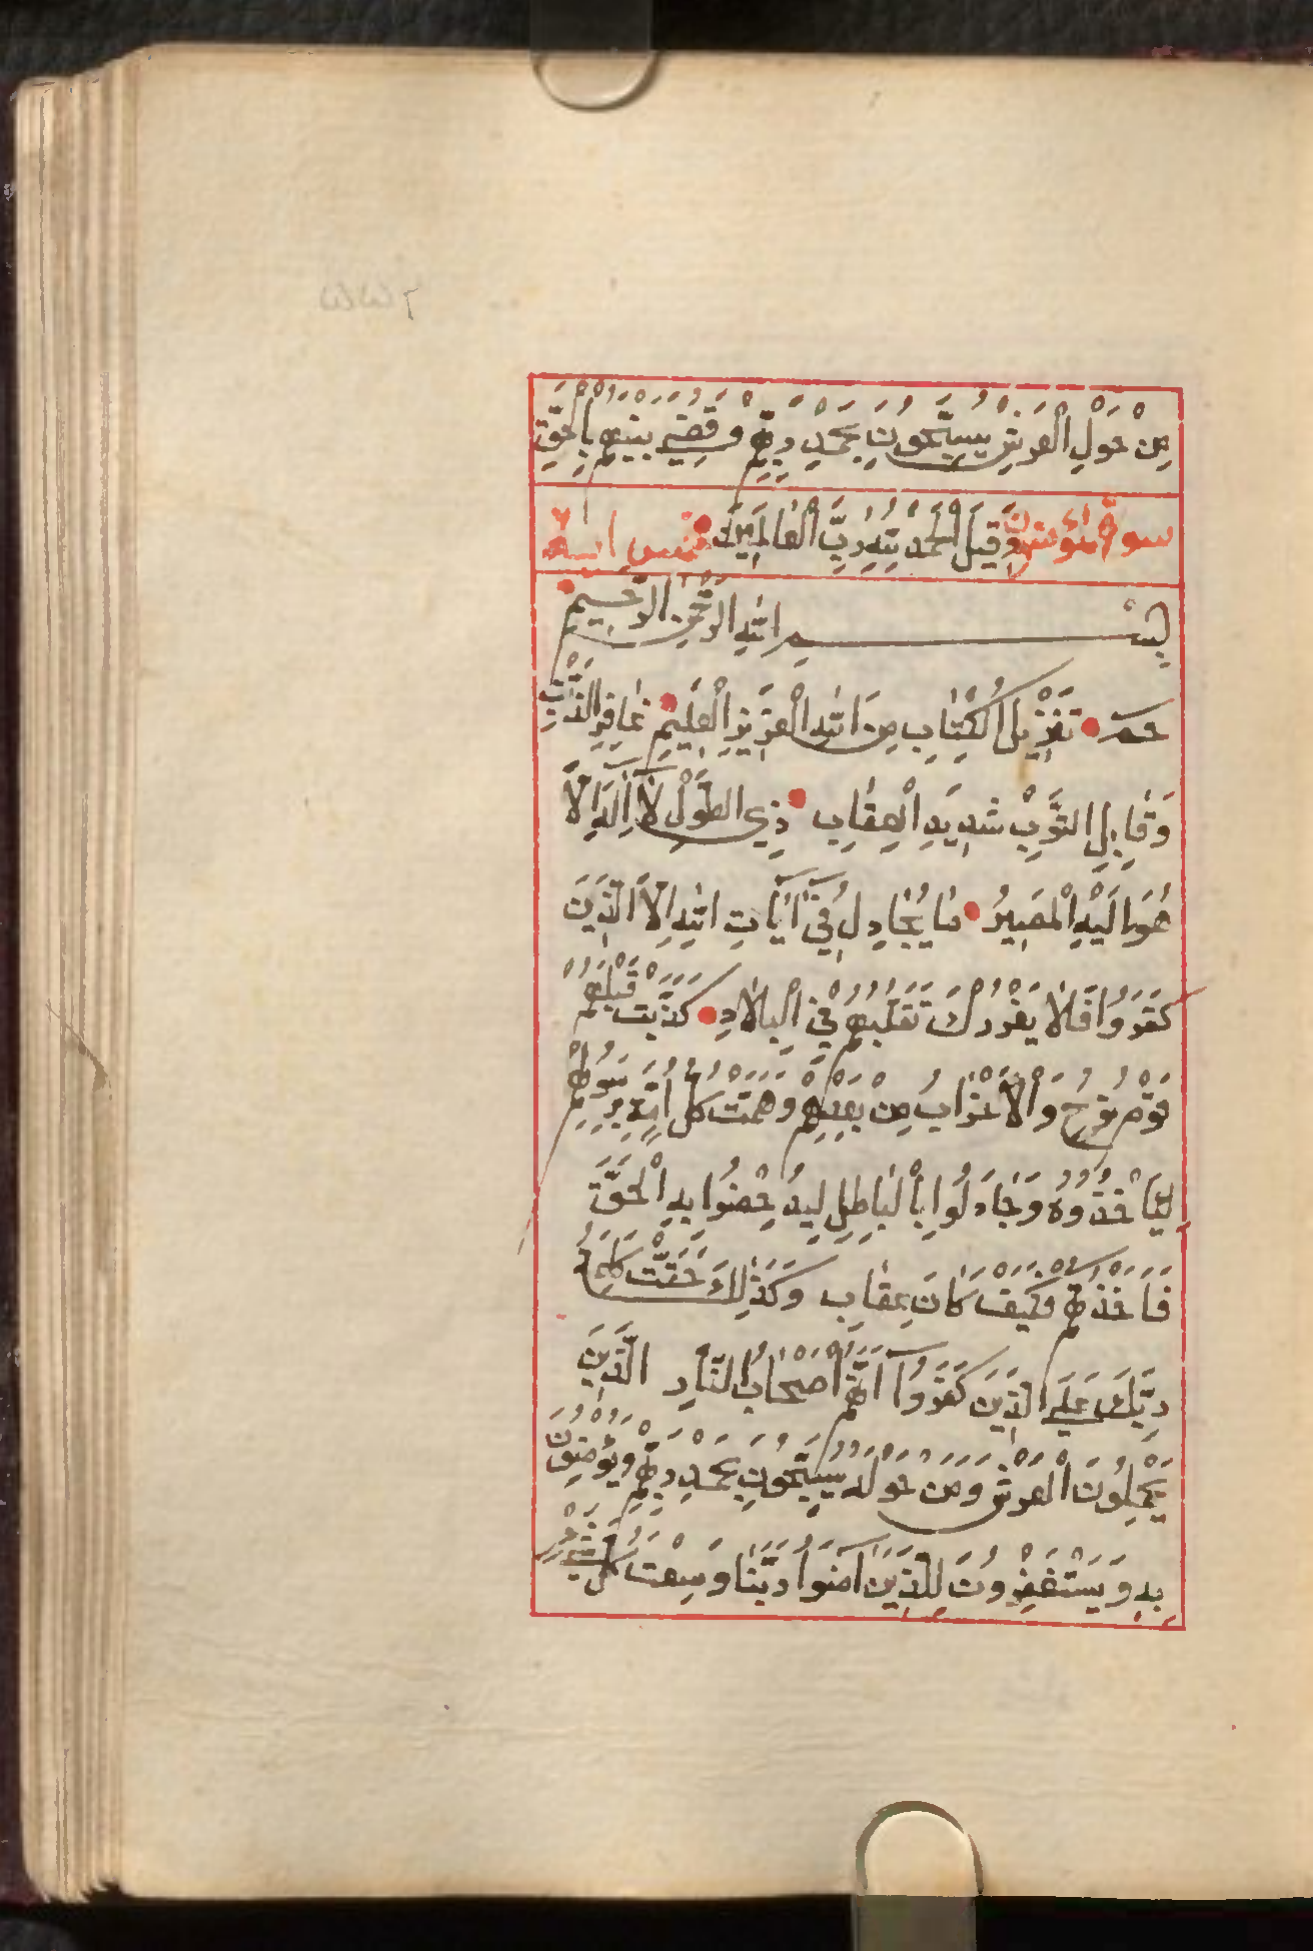 مِنْ حَوْلِ الْعَرْشِ يُسَبِّحُونَ بِحَمْدِ رَبِّهِمْ وَقُضِيَ بَيْنَهُمْ بِالْحَقِّ
سورة المؤمن وَقِيلَ الْحَمْدُ لِلَّهِ رَبِّ الْعَالَمِينَ
بِسْمِ اللَّهِ الرَّحْمٰنِ الرَّحِيمِ
حم تَنْزِيلُ الْكِتَابِ مِنَ اللَّهِ الْعَزِيزِ الْعَلِيمِ غَافِرِ الذَّنْبِ
وَقَابِلِ التَّوْبِ شَدِيدِ الْعِقَابِ ذِي الطَّوْلِ لَآ اِلَهَ اِلَّا
هُوَ اِلَيْهِ الْمَصِيرُ مَا يُجَادِلُ فِيٓ آيَاتِ اللَّهِ اِلَّا الَّذِينَ
كَفَرُوا فَلَا يَغْرُرْكَ تَقَلُّبُهُمْ فِي الْبِلَادِ كَذَّبَتْ قَبْلَهُمْ
قَوْمُ نُوحٍ وَالْأَحْزَابُ مِنْ بَعْدِهِمْ وَهَمَّتْ كُلُّ اُمَّةٍ بِرَسُولِهِمْ
لِيَأْخُذُوهُ وَجَادَلُوا بِالْبَاطِلِ لِيُدْحِضُوا بِهِ الْحَقَّ
فَأَخَذْتُهُمْ فَكَيْفَ كَانَ عِقَابِ وَكَذَلِكَ حَقَّتْ كَلِمَةُ
رَبِّكَ عَلَى الَّذِينَ كَفَرُوآ اَنَّهُمْ اَصْحَابُ النَّارِ الَّذِينَ
يَحْمِلُونَ الْعَرْشَ وَمَنْ حَوْلَهُ يُسَبِّحُونَ بِحَمْدِ رَبِّهِمْ وَيُؤْمِنُونَ
بِهِ وَيَسْتَغْفِرُونَ لِلَّذِينَ آمَنُوا رَبَّنَا وَسِعْتَ كُلَّ شَيْءٍ